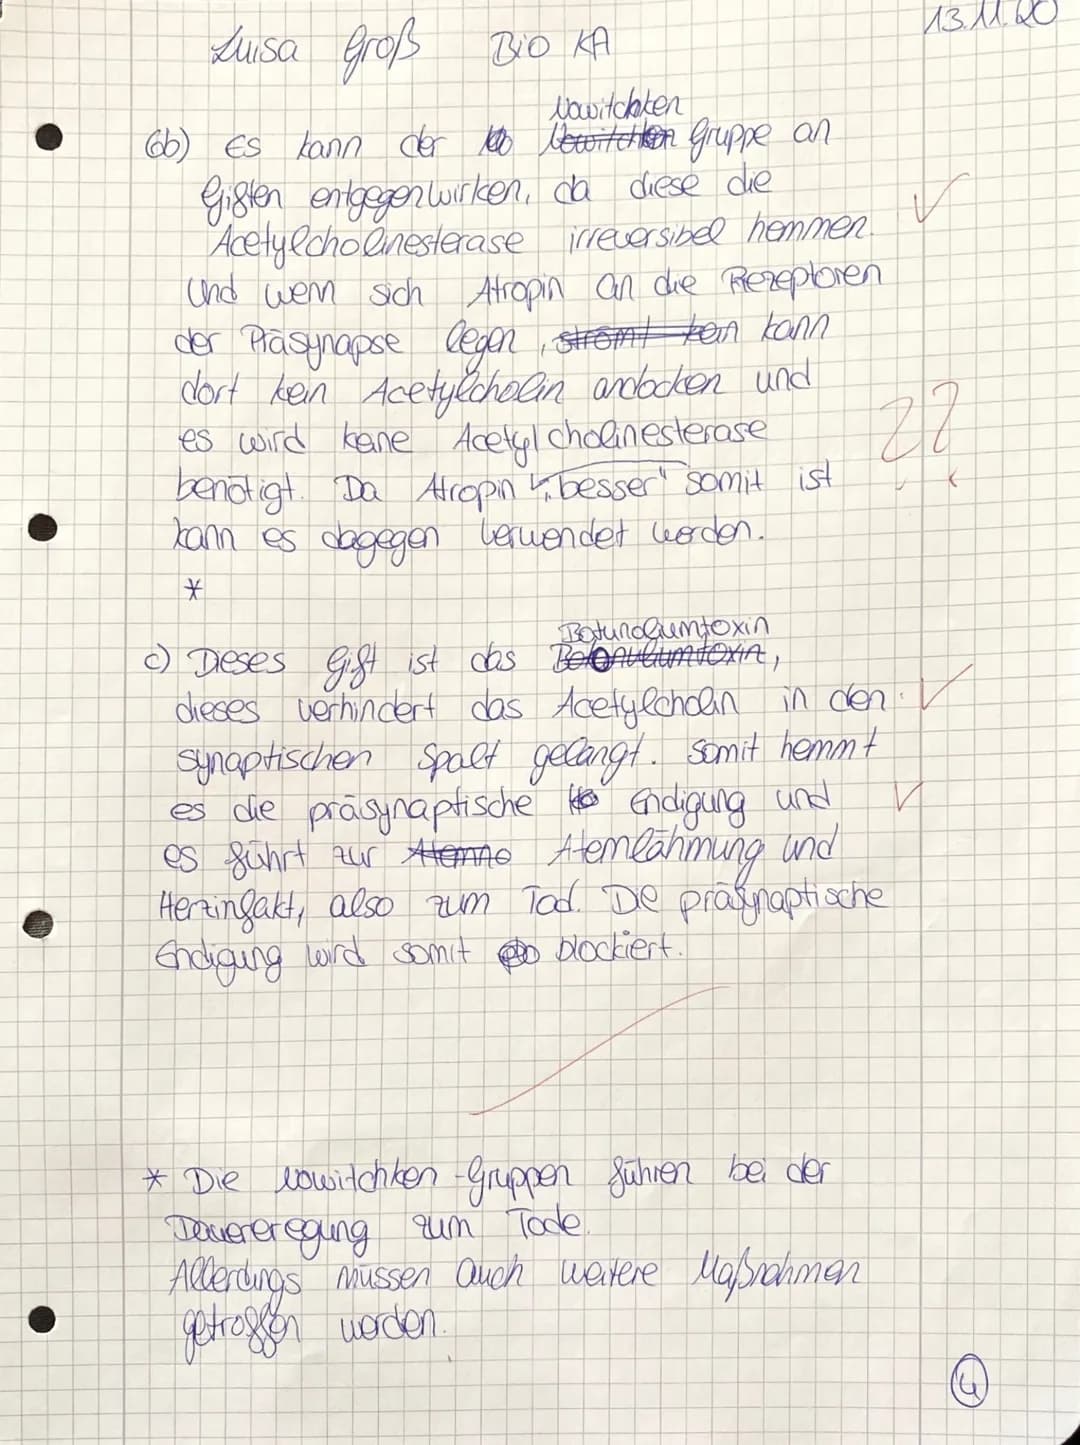 13.11.20
Luisa Groß Bio KA
Nowitchken
6b) Es kann der Gruppe an
Giften entgegenwirken, da diese die
Acetylcholinesterase irreversibel hemmen.
Und wenn sich Atropin an die Rezeptoren
der Präsynapse legen, strömt kein kann
dort kein Acetylcholin andocken und
es wird keine Acetylcholinesterase
??
benötigt. Da Atropin "besser" somit ist
kann es dagegen verwendet werden.
*
Botunoliumtoxin
c) Dieses Gift ist das
dieses verhindert das Acetylcholin in den
synaptischen Spalt gelangt. Somit hemmt
es die präsynaptische Endigung und
es führt zur Atemlähmung und
Herzinfakt, also zum Tod. Die präsynaptische
Endigung wird somit blockiert.
* Die Nowitchken-Gruppen führen bei der
Dauereregung zum Tode.
Allerdings müssen auch weitere Maßnahmen
getroffen werden.
4